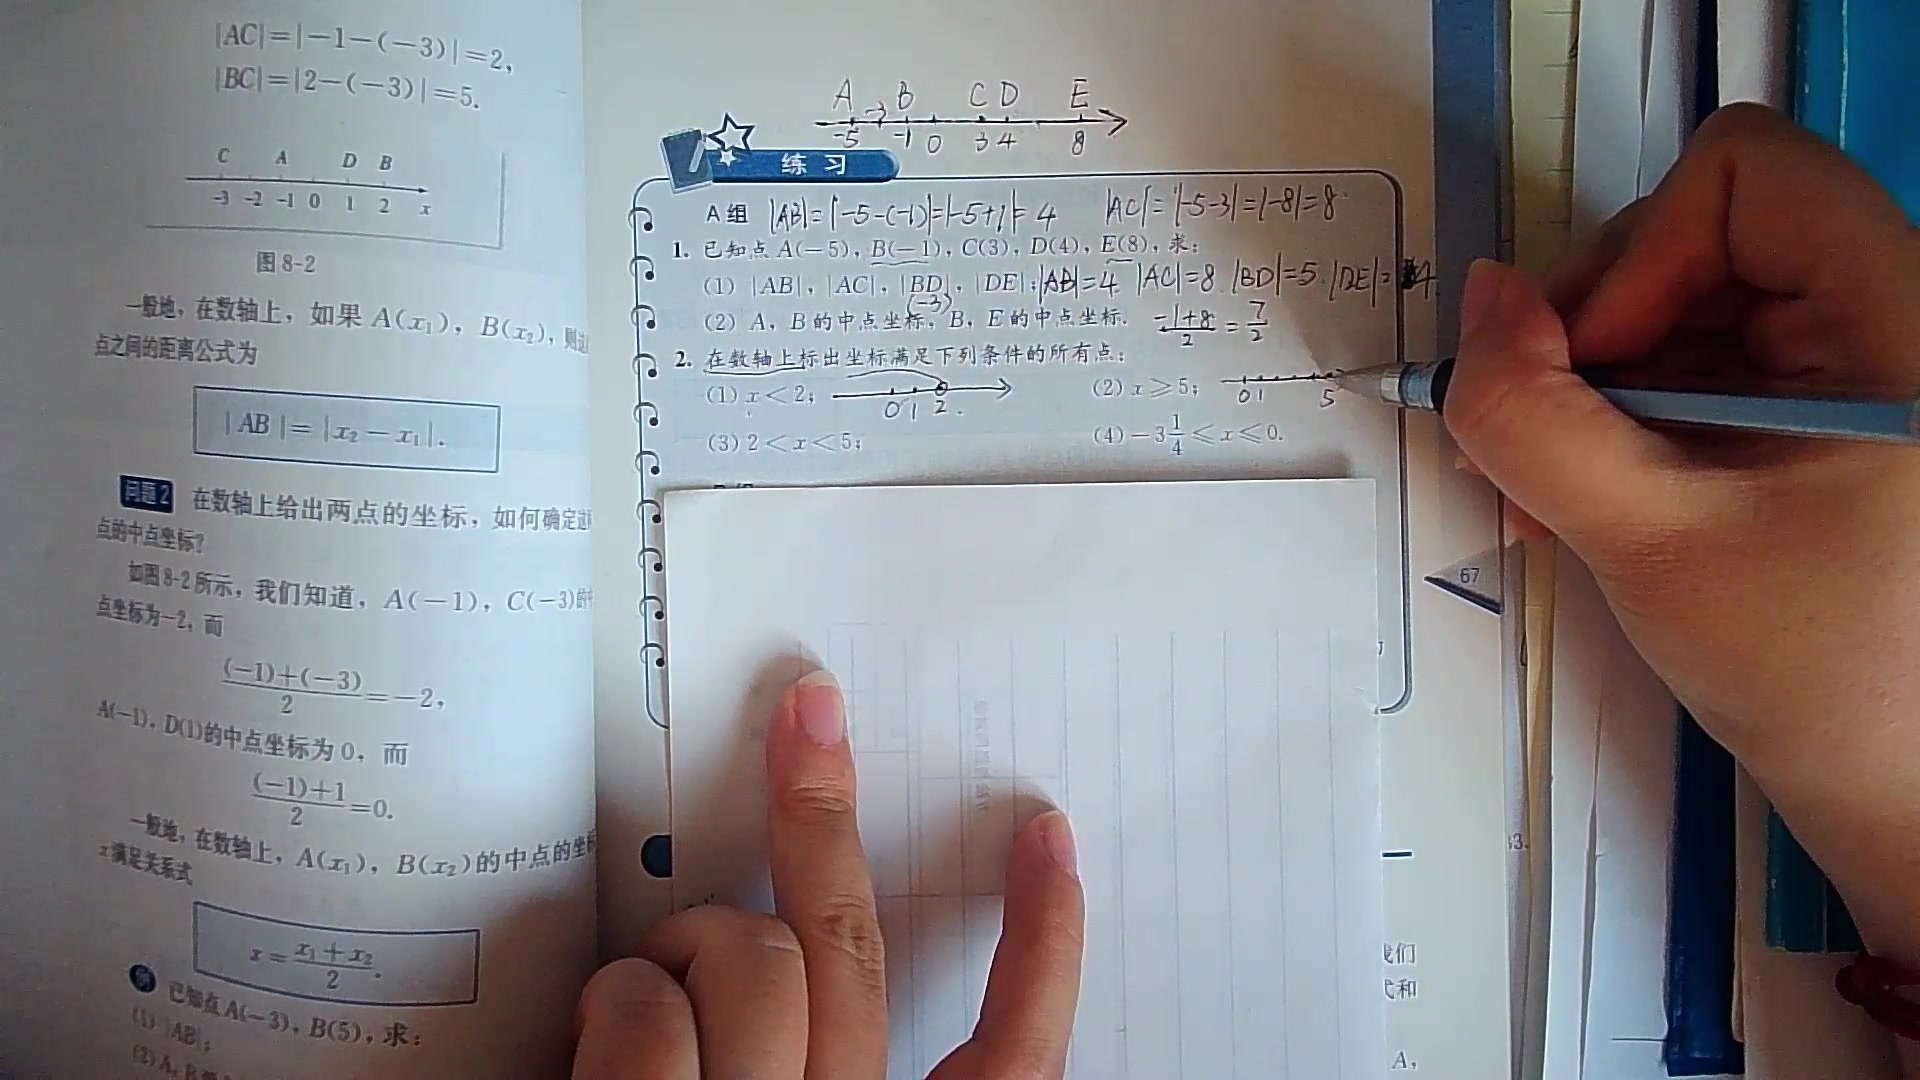 |AC|=|-1-(-3)|=2,
|BC|=|2-(-3)|=5.
C A D B
-3 -2 -1 0 1 2 x
图 8-2
一般地，在数轴上，如果 A(x₁)，B(x₂)，则这
点之间的距离公式为
|AB|=|x₂-x₁|.
问题2 在数轴上给出两点的坐标，如何确定这
点的中点坐标？
如图8-2所示，我们知道，A(-1)，C(-3)的
点坐标为-2，而
((-1)+(-3))/2=-2,
A(-1)，D(1)的中点坐标为0，而
((-1)+1)/2=0.
一般地，在数轴上，A(x₁)，B(x₂)的中点的坐标
x满足关系式
x=(x₁+x₂)/2.
例 已知点A(-3)，B(5)，求：
(1) |AB|；
(2) A，B
A -3 B C D E
-5 -1 0 3 4 8
练习
A组 |AB|=|-5-(-1)|=|-5+1|=4 |AC|=|-5-3|=|-8|=8
1. 已知点 A(-5)，B(-1)，C(3)，D(4)，E(8)，求：
(1) |AB|，|AC|，|BD|，|DE|；|AB|=4 |AC|=8. |BD|=5. |DE|=4.
(-3)
(2) A，B 的中点坐标，B，E 的中点坐标. (-1+8)/2=7/2
2. 在数轴上标出坐标满足下列条件的所有点：
(1) x<2； 0 1 2. (2) x≥5； 0 1 5
(3) 2<x<5； (4) -3 1/4≤x≤0.
67
我们
式和
A，